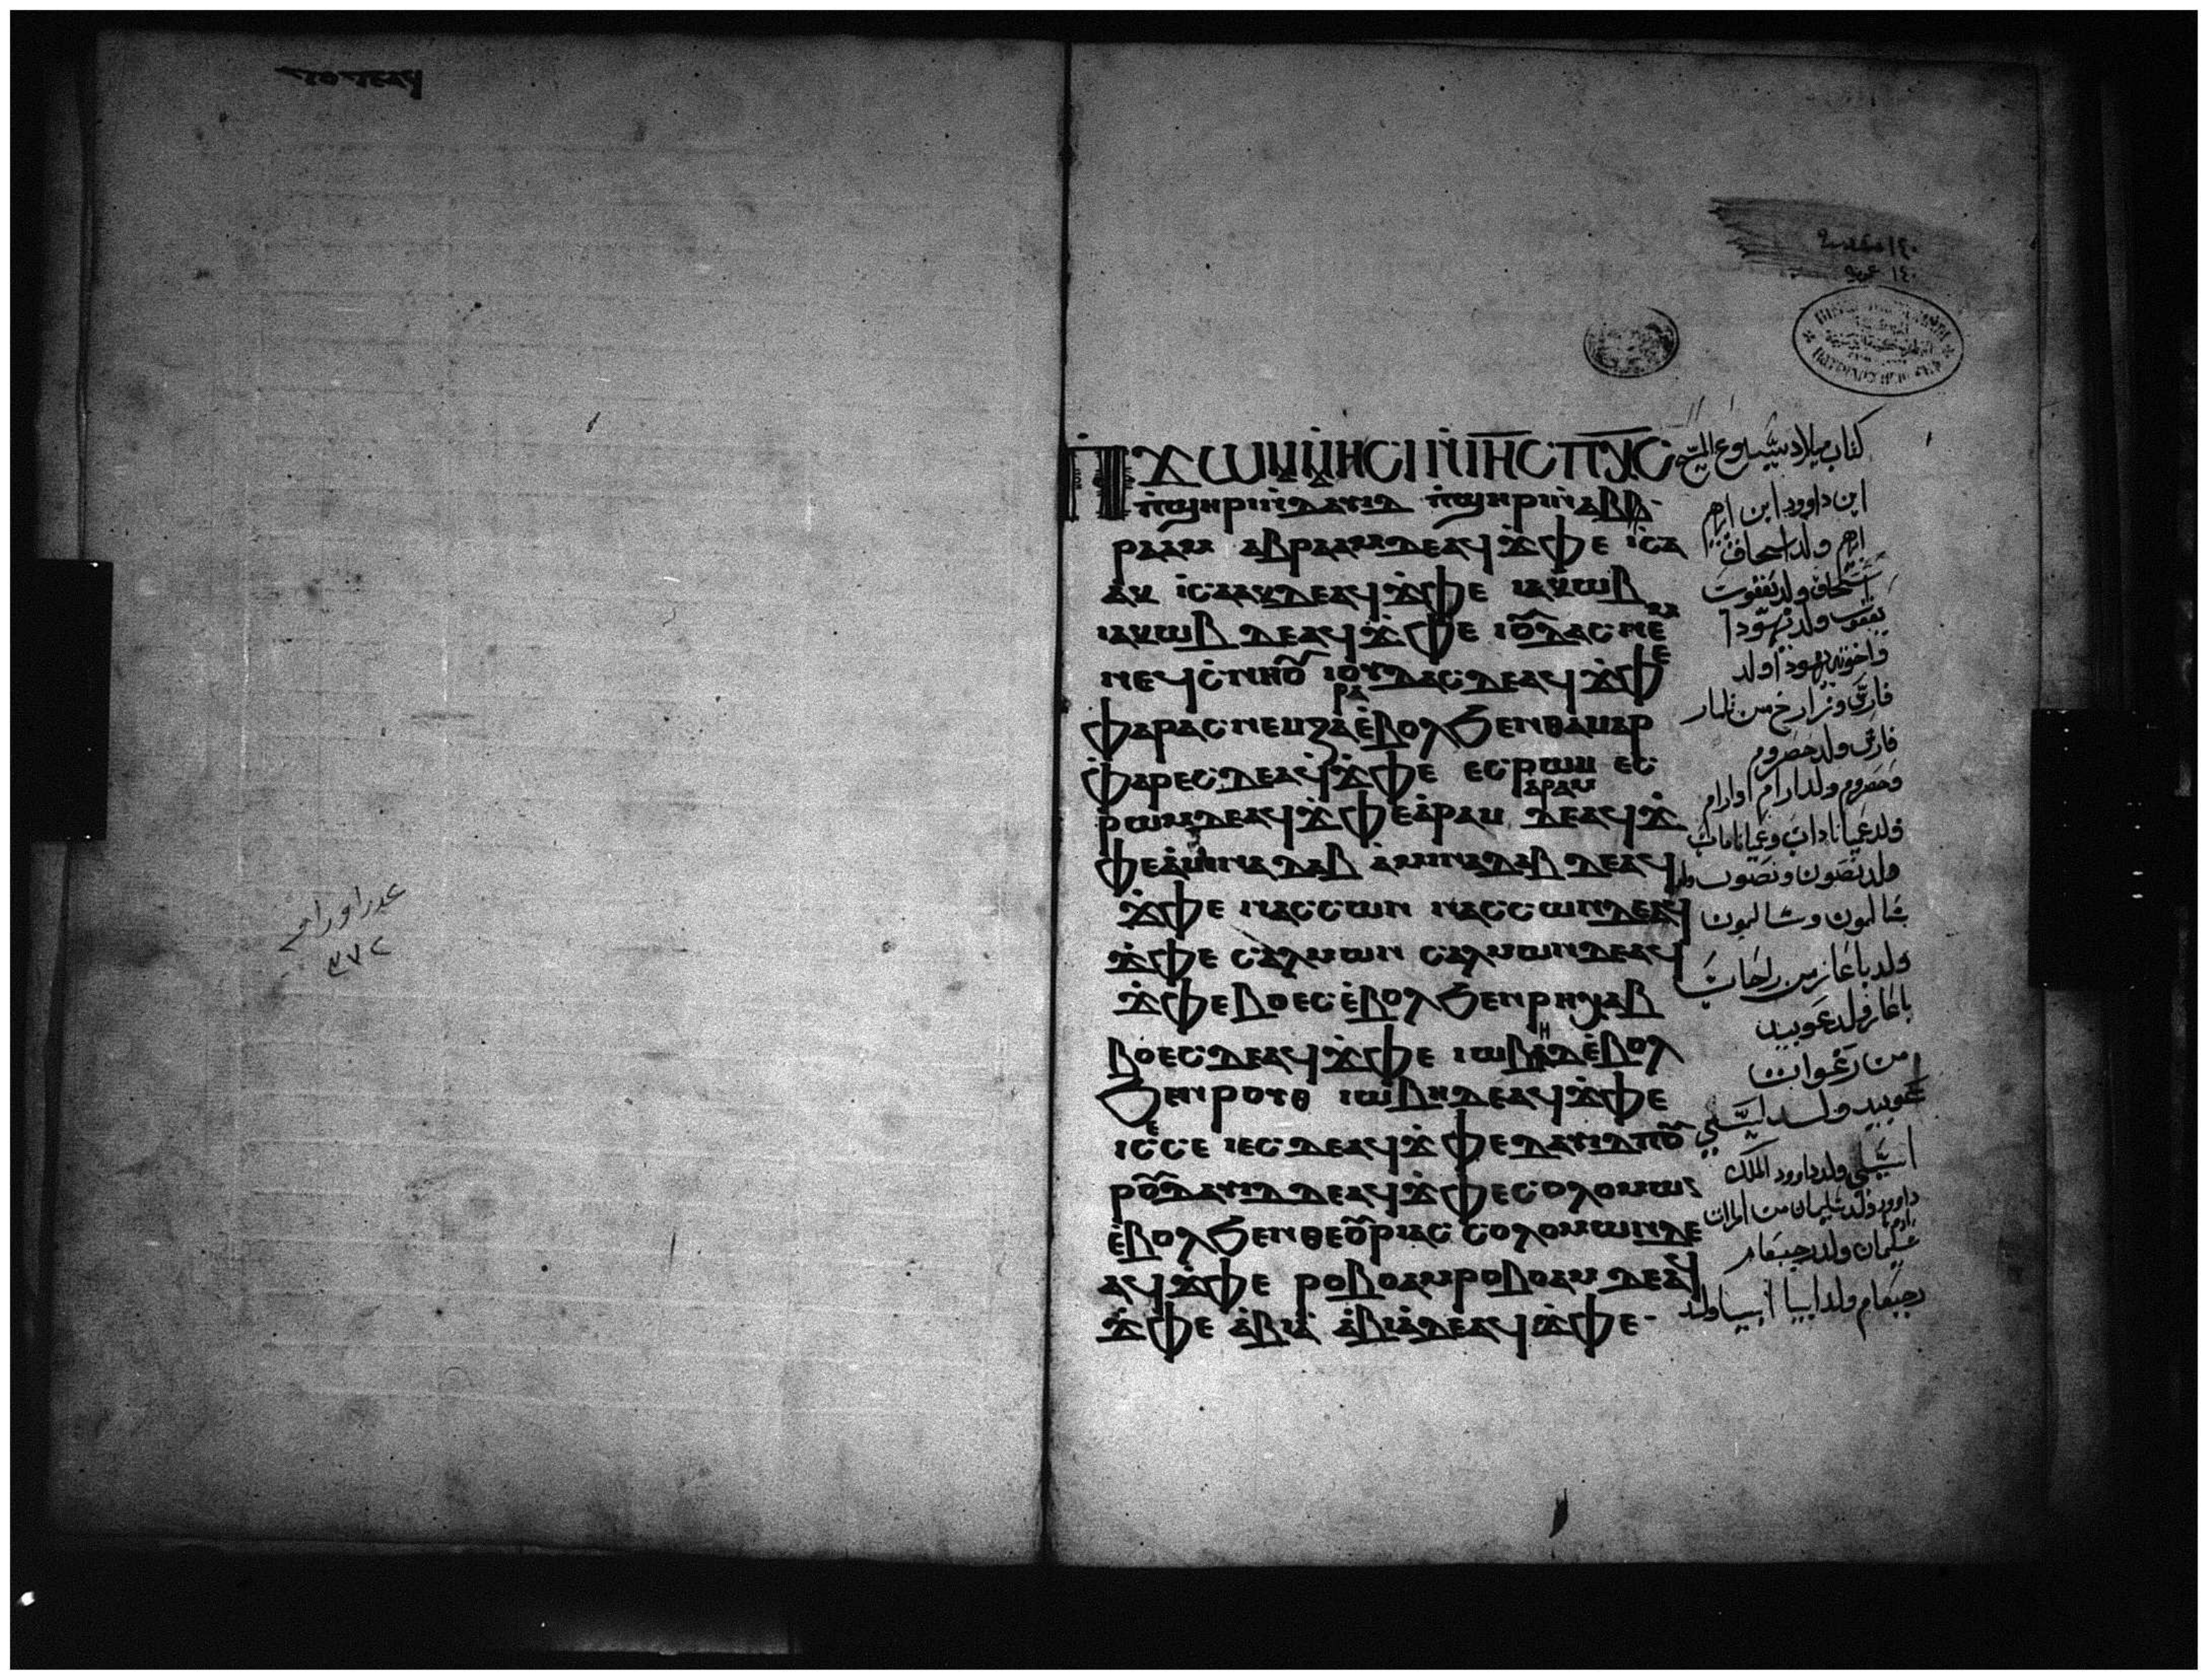 عدد اوراقه
٣٧٢
ⲠϪⲰⲘⲘⲘⲎⲤⲒⲚⲒⲎⲤⲠⲬⲤ
ⲡϣⲏⲣⲓⲛⲇⲁⲩⲓⲇ ⲡϣⲏⲣⲓⲛⲁⲃ
ⲣⲁⲁⲙ ⲁⲃⲣⲁⲁⲙⲇⲉⲁϥϫⲫⲉ ⲓⲥⲁ
ⲁⲕ ⲓⲥⲁⲁⲕⲇⲉⲁϥϫⲫⲉ ⲓⲁⲕⲱⲃ
ⲓⲁⲕⲱⲃ ⲇⲉⲁϥϫⲫⲉ ⲓⲟⲩⲇⲁⲥⲛⲉⲙ
ⲛⲉϥⲥⲛⲏⲟⲩ ⲓⲟⲩⲇⲁⲥⲇⲉⲁϥϫⲫⲉ
ⲫⲁⲣⲁⲥⲛⲉⲙⲍⲁⲣⲁⲉⲃⲟⲗϧⲉⲛⲑⲁⲙⲁⲣ
ⲫⲁⲣⲉⲥⲇⲉⲁϥϫⲫⲉ ⲉⲥⲣⲱⲙ ⲉⲥ
ⲣⲱⲙⲇⲉⲁϥϫⲫⲉⲁⲣⲁⲙ ⲁⲣⲁⲙ ⲇⲉⲁϥϫ
ⲫⲉⲁⲙⲓⲛⲁⲇⲁⲃ ⲁⲙⲓⲛⲁⲇⲁⲃ ⲇⲉⲁϥ
ϫⲫⲉ ⲛⲁⲥⲥⲱⲛ ⲛⲁⲥⲥⲱⲛⲇⲉⲁϥ
ϫⲫⲉ ⲥⲁⲗⲙⲱⲛ ⲥⲁⲗⲙⲱⲛⲇⲉⲁϥ
ϫⲫⲉⲃⲟⲉⲥⲉⲃⲟⲗϧⲉⲛⲣⲏⲭⲁⲃ
ⲃⲟⲉⲥⲇⲉⲁϥϫⲫⲉ ⲓⲱⲃⲏⲇⲉⲃⲟⲗ
ϧⲉⲛⲣⲟⲩⲑ ⲓⲱⲃⲏⲇⲉⲁϥϫⲫⲉ
ⲓⲉⲥⲥⲉ ⲓⲉⲥⲇⲉⲁϥϫⲫⲉⲇⲁⲩⲓⲇⲡⲟⲩ
ⲣⲟⲇⲁⲩⲓⲇⲇⲉⲁϥϫⲫⲉⲥⲟⲗⲟⲙⲱⲛ
ⲉⲃⲟⲗϧⲉⲛⲑⲉⲟⲩⲣⲓⲁⲥ ⲥⲟⲗⲟⲙⲱⲛⲇⲉ
ⲁϥϫⲫⲉ ⲣⲟⲃⲟⲁⲙⲣⲟⲃⲟⲁⲙ ⲇⲉⲁϥ
ϫⲫⲉ ⲁⲃⲓⲁ ⲁⲃⲓⲁⲇⲉⲁϥϫⲫⲉ
كتاب ميلاد يسوع المسيح
ابن داوود ابن ابرهيم
ابرهيم ولد اسحاق
اسحاق ولد يعقوب
يعقوب ولد يهودا
واخوته يهوذا ولد
فارص وزارخ من ثامار
فارص ولد حصروم
وحصروم ولد ارام اوارام
ولد نصون ونصون ولد
شالمون وشالمون
ولد باعاز من راحاب
باعاز ولد عوبيد
من راعوات
عوبيد ولد ايسى
ايسى ولد داوود الملك
شليمان ولد رحبعام
رحبعام ولد ابيا ابيا ولد